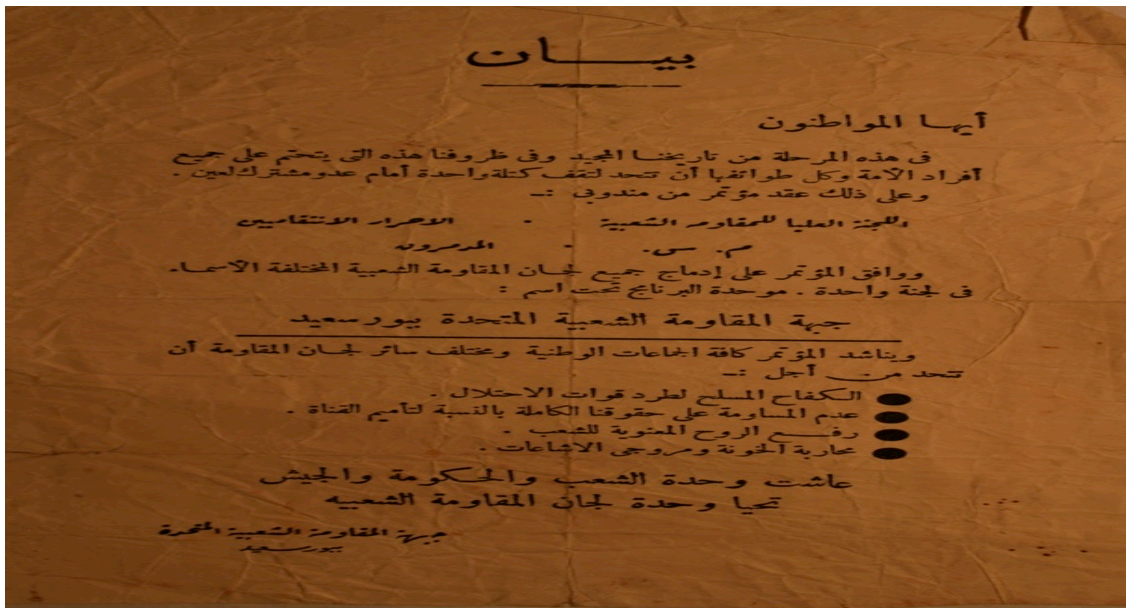 بيــــان
أيها المواطنون
فى هذه المرحلة من تاريخنا المجيد وفى ظروفنا هذه التى يتحتم على جميع
أفراد الأمة وكل طوائفها أن تتحد لتقف كتلة واحدة أمام عدو مشترك لعين .
وعلى ذلك عقد مؤتمر من مندوبى :ــ
اللجنة العليا للمقاومة الشعبية • الاحرار الانتقاميين
م. س. • المدمرون
ووافق المؤتمر على إدماج جميع لجان المقاومة الشعبية المختلفة الأسماء
فى لجنة واحدة . موحدة البرنامج تحت اسم :
جبهة المقاومة الشعبية المتحدة ببورسعيد
ويناشد المؤتمر كافة الجماعات الوطنية ومختلف سائر لجان المقاومة أن
تتحد من أجل :ــ
● الكفاح المسلح لطرد قوات الاحتلال .
● عدم المساومة على حقوقنا الكاملة بالنسبة لتأميم القناة .
● رفع الروح المعنوية للشعب .
● محاربة الخونة ومروجى الاشاعات .
عاشت وحدة الشعب والحكومة والجيش
تحيا وحدة لجان المقاومة الشعبيه
جبهة المقاومة الشعبية المتحدة
ببورسعيد